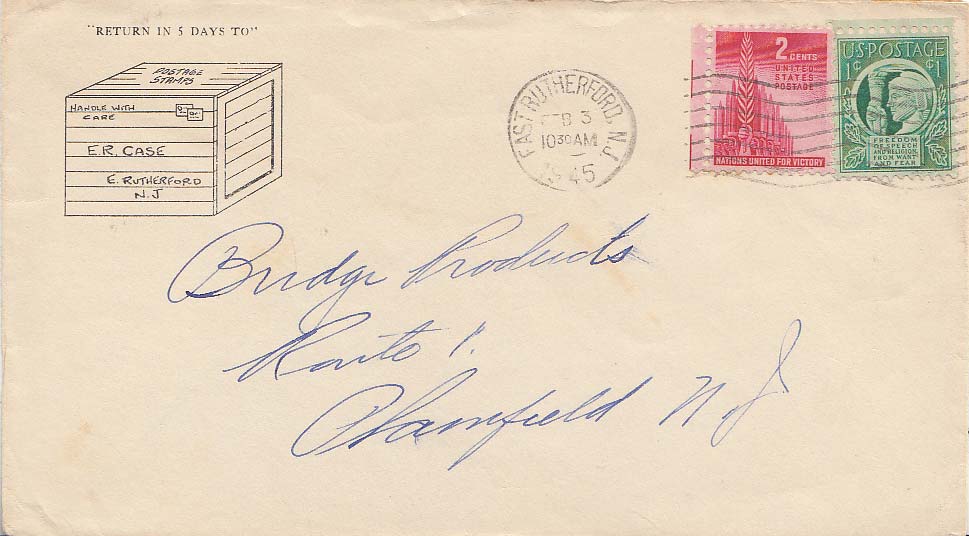 "RETURN IN 5 DAYS TO"
POSTAGE
STAMPS
HANDLE WITH
CARE
E.R. CASE
E. RUTHERFORD
N.J
EAST RUTHERFORD, N.J.
FEB 3
10 30 AM
1945
2 CENTS
UNITED
STATES
POSTAGE
NATIONS UNITED FOR VICTORY
U.S. POSTAGE
1¢ ¢1
FREEDOM
OF SPEECH
AND RELIGION,
FROM WANT
AND FEAR
Bridge Products
Route 1.
Plainfield N J